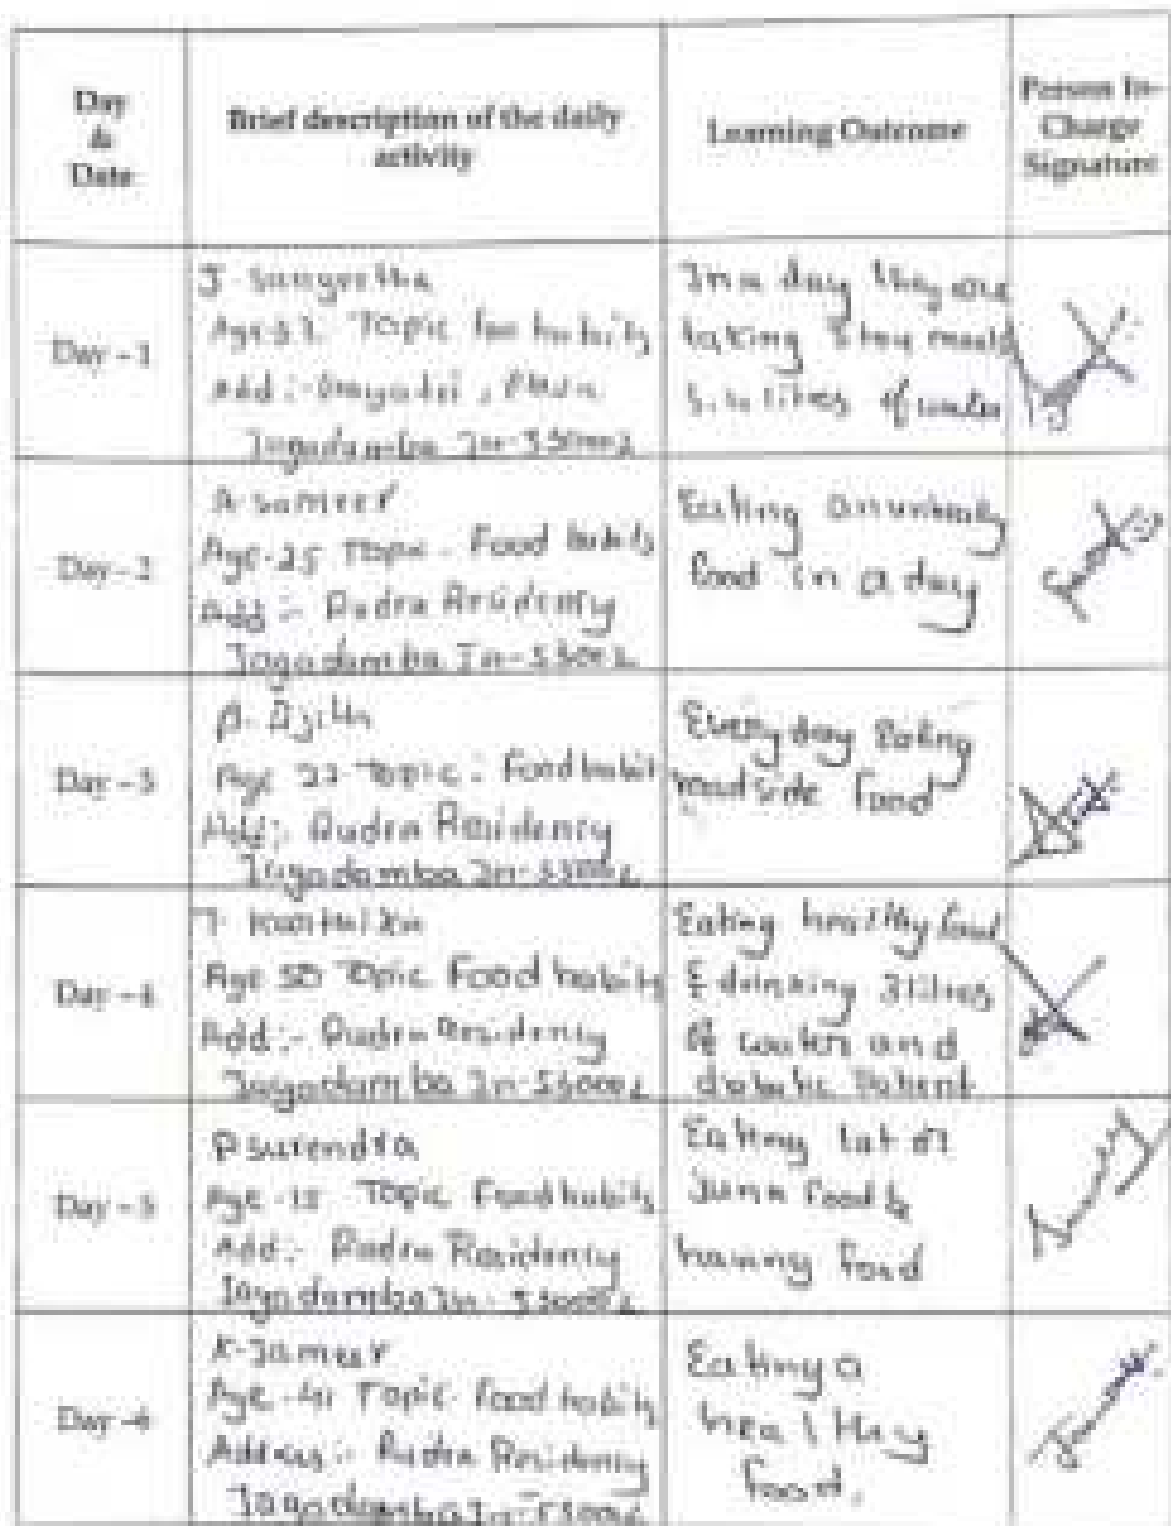 Day
&
Date
Brief description of the daily
activity
Learning Outcome
Person In-
Charge
Signature
Day - 1
J. Sangeetha
Topic
Add :-
Jagadamba Jn-530002
In a day they are
taking meals
litres of water
Day - 2
A. Sameer
Age-25 Topic - Food habits
Add :- Rudra Residency
Jagadamba Jn-530002
Eating
food in a day
Day - 3
Age 22 Topic : Food habit
Add:- Rudra Residency
Jagadamba Jn-530002
Every day Eating
road side food
Day - 4
Age 50 Topic Food habits
Add :- Rudra Residency
Jagadamba Jn-530002
Eating healthy food
& drinking 3 litres
of water and
diabetic Patient
Day - 5
P Surendra
Topic Food habits
Add :- Rudra Residency
Jagadamba Jn- 530002
Eating lot of
Junk food &
having food
Day - 6
Topic - food habits
Address :- Rudra Residency
Jagadamba Jn-530002
Eating a
healthy
food.